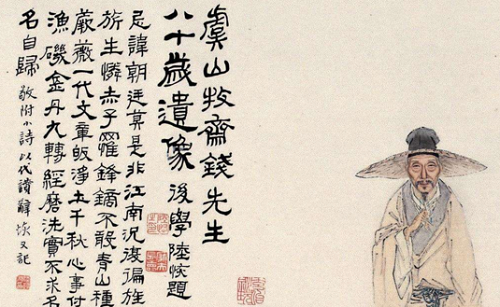 虞山牧齋錢先生
八十歲遺像 後學陸恢題
忌諱朝廷莫是非江南況復徧旌
旂生憐赤子羅鋒鏑不 青山種
蕨薇一代文章皈淨土千秋心事付
漁磯金丹九轉經磨洗實不求名
名自歸 敬附小詩以代讚辭 恢又記